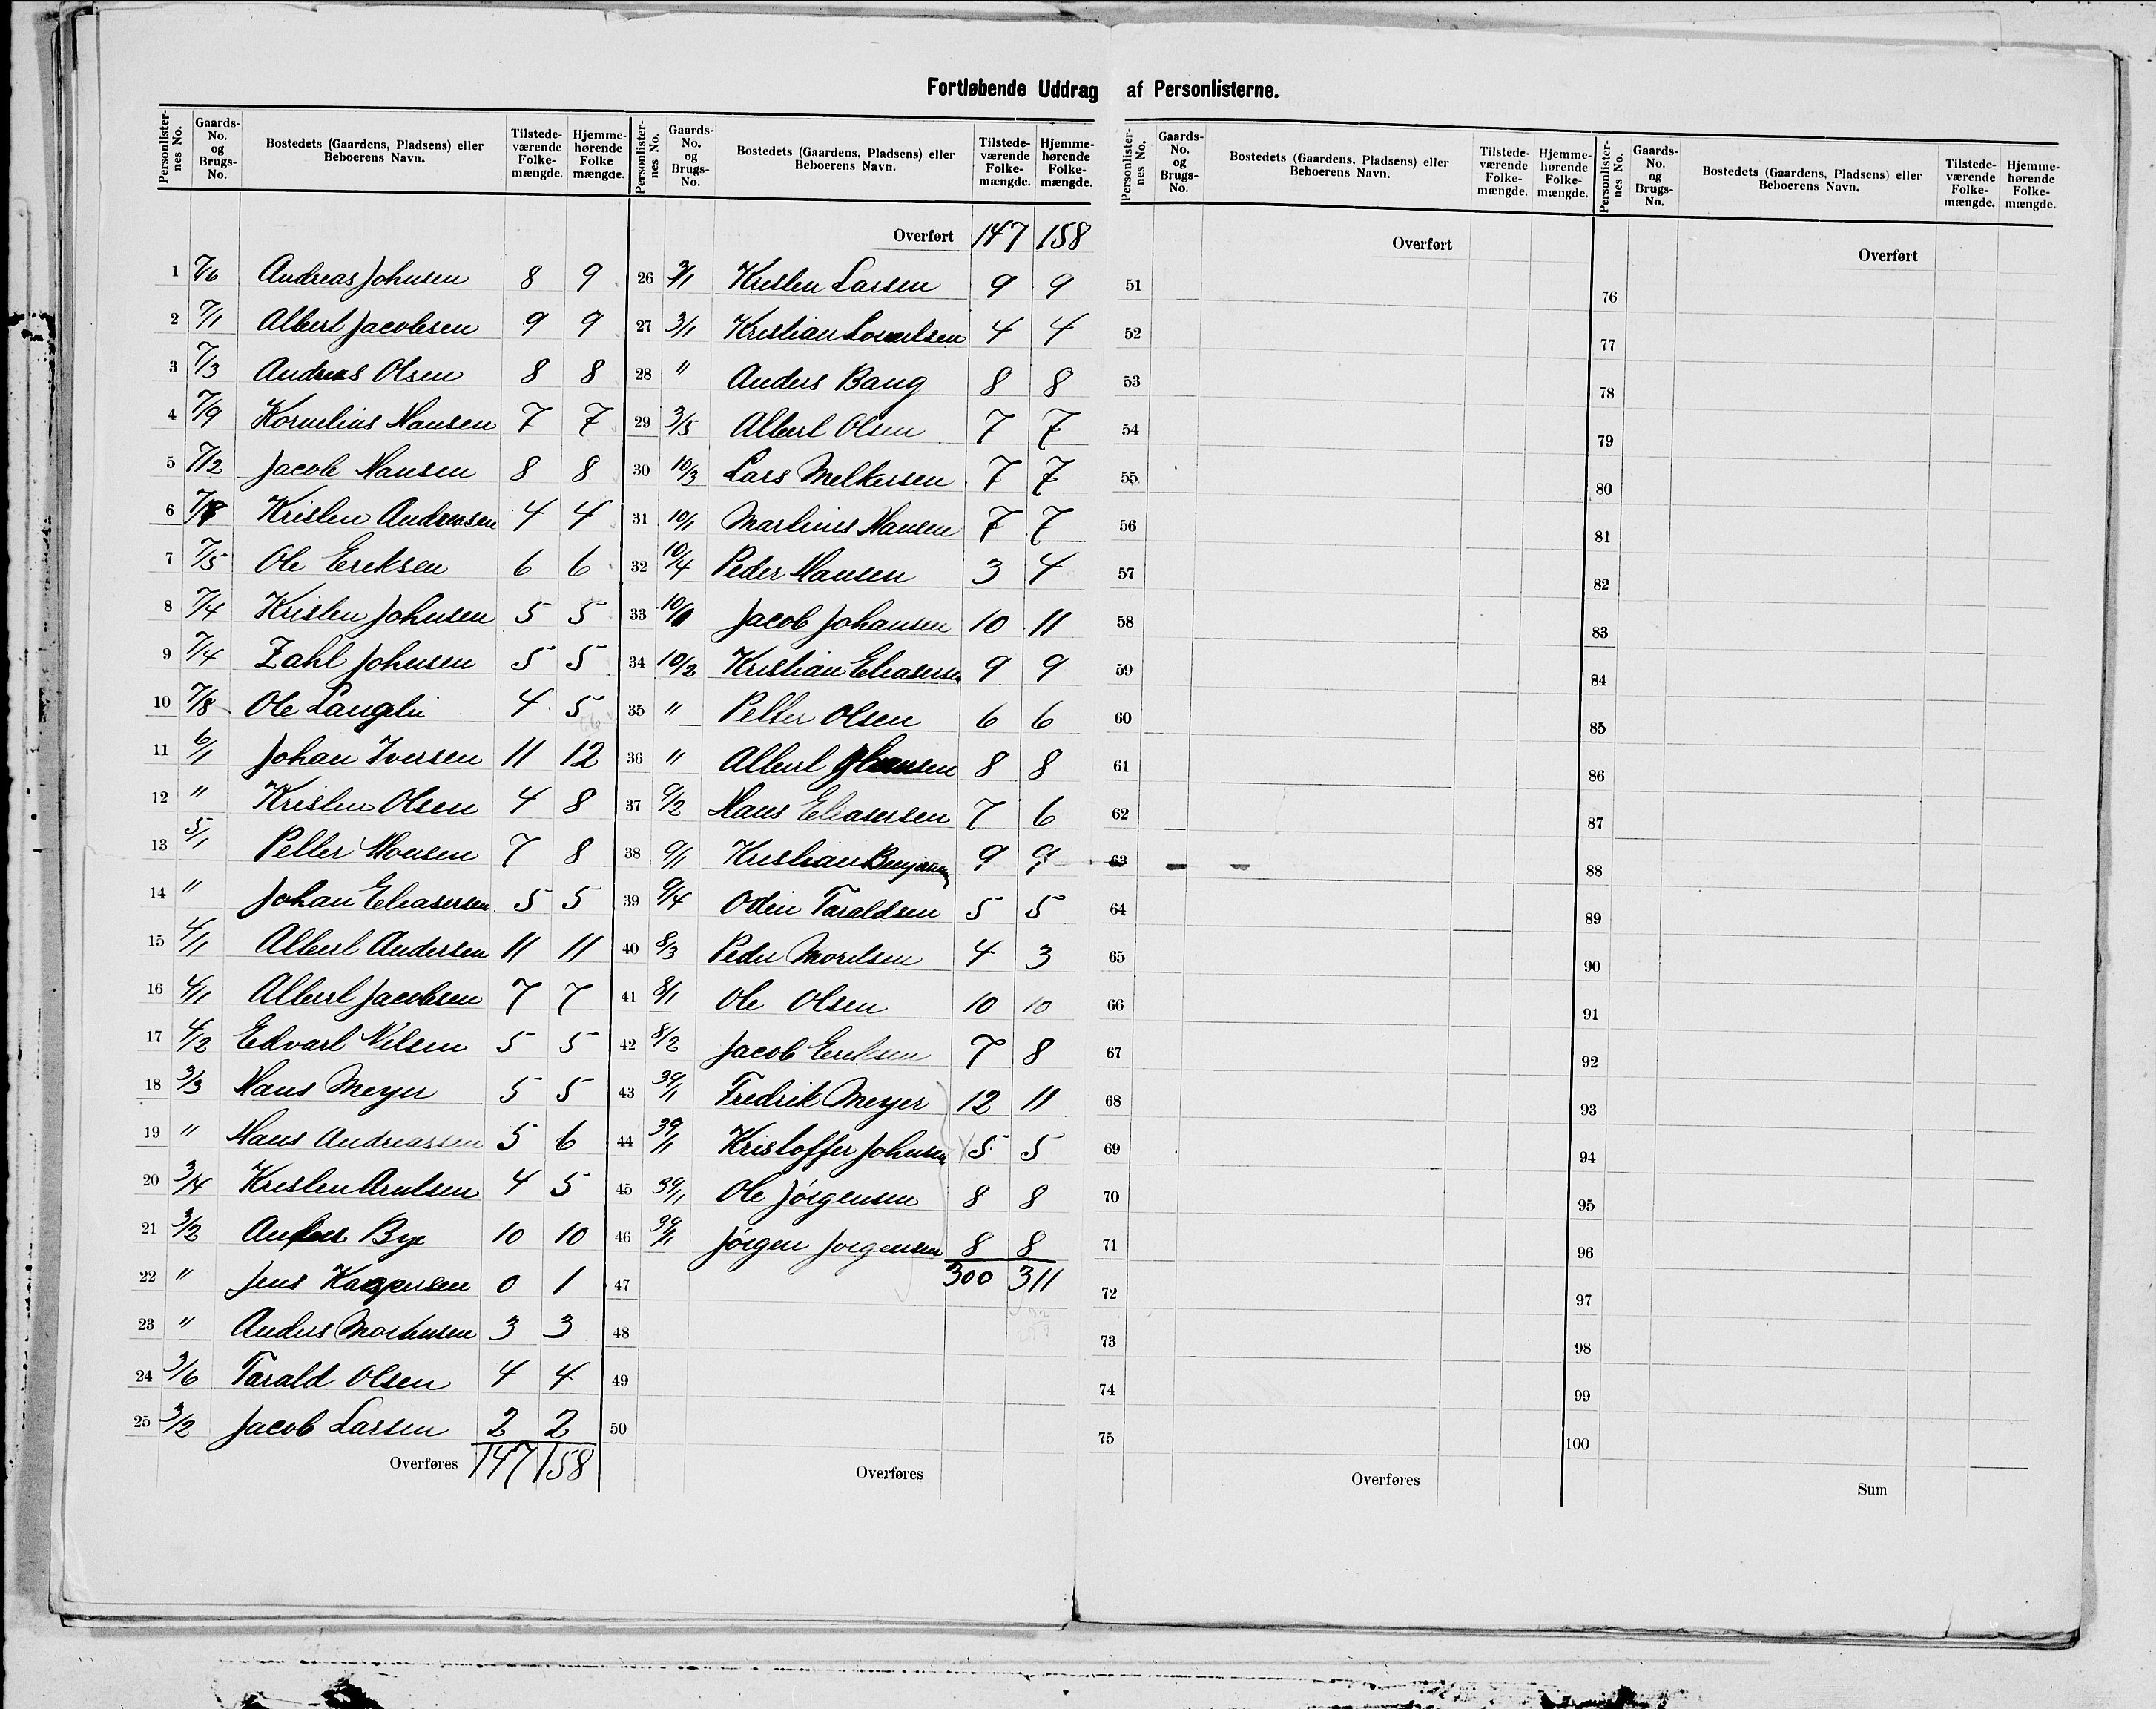 Fortløbende Uddrag af Personlisterne.
Personlisternes No. Gaards-No. og Brugs-No. Bostedets (Gaardens, Pladsens) eller Beboerens Navn. Tilstedeværende Folkemængde. Hjemmehørende Folke mængde.
1 7/6 Andreas Johnsen 8 9
2 7/1 Albert Jacobsen 9 9
3 7/3 Andreas Olsen 8 8
4 7/9 Kornelius Hansen 7 7
5 7/12 Jacob Hansen 8 8
6 Kristen Andreasen 4 4
7 7/5 Ole Eriksen 6 6
8 7/4 Kristen Johnsen 5 5
9 7/4 Zahl Johnsen 5 5
10 7/8 Ole Langli 4 5
11 6/1 Johan Iversen 11 12
12 " Kristen Olsen 4 8
13 5/1 Petter Monsen 7 8
14 " Johan Eliasersen 5 5
15 4/1 Albert Andersen 11 11
16 4/1 Albert Jacobsen 7 7
17 4/2 Edvart Nilsen 5 5
18 3/3 Hans Meyer 5 5
19 " Hans Andreassen 5 6
20 3/4 Kristen Arntsen 4 5
21 3/2 Anders Bye 10 10
22 " Jens Kaspersen 0 1
23 " Anders Mortensen 3 3
24 3/6 Tarald Olsen 4 4
25 3/2 Jacob Larsen 2 2
Overføres 147 158
Personlisternes No. Gaards-No. og Brugs-No. Bostedets (Gaardens, Pladsens) eller Beboerens Navn. Tilstedeværende Folkemængde. Hjemmehørende Folkemængde.
Overført 147 158
26 3/1 Kristen Larsen 9 9
27 3/1 Kristian 4 4
28 " Anders Bang 8 8
29 3/5 Albert Olsen 7 7
30 10/3 Lars Melkersen 7 7
31 10/1 Martinus Hansen 7 7
32 10/4 Peder Hansen 3 4
33 Jacob Johansen 10 11
34 10/2 Kristian Eliasersen 9 9
35 " Petter Olsen 6 6
36 " Albert 8 8
37 9/2 Hans Eliasersen 7 6
38 9/1 Kristian Benjamin 9 9
39 9/4 Odin Taraldsen 5 5
40 8/3 Peder 4 3
41 8/1 Ole Olsen 10 10
42 8/2 Jacob Eriksen 7 8
43 39/1 Fredrik Meyer 12 11
44 39/1 Kristoffer Johnsen 5 5
45 39/1 Ole Jörgensen 8 8
46 39/1 Jörgen Jörgensen 8 8
47 300 311
48
49
50
Overføres
Personlisternes No. Gaards-No. og Brugs-No. Bostedets (Gaardens, Pladsens) eller Beboerens Navn. Tilstedeværende Folkemængde. Hjemmehørende Folkemængde.
Overført
51
52
53
54
55
56
57
58
59
60
61
62
63
64
65
66
67
68
69
70
71
72
73
74
75
Overføres
Personlisternes No. Gaards-No. og Brugs-No. Bostedets (Gaardens, Pladsens) eller Beboerens Navn. Tilstedeværende Folkemængde. Hjemmehørende Folkemængde.
Overført
76
77
78
79
80
81
82
83
84
85
86
87
88
89
90
91
92
93
94
95
96
97
98
99
100
Sum